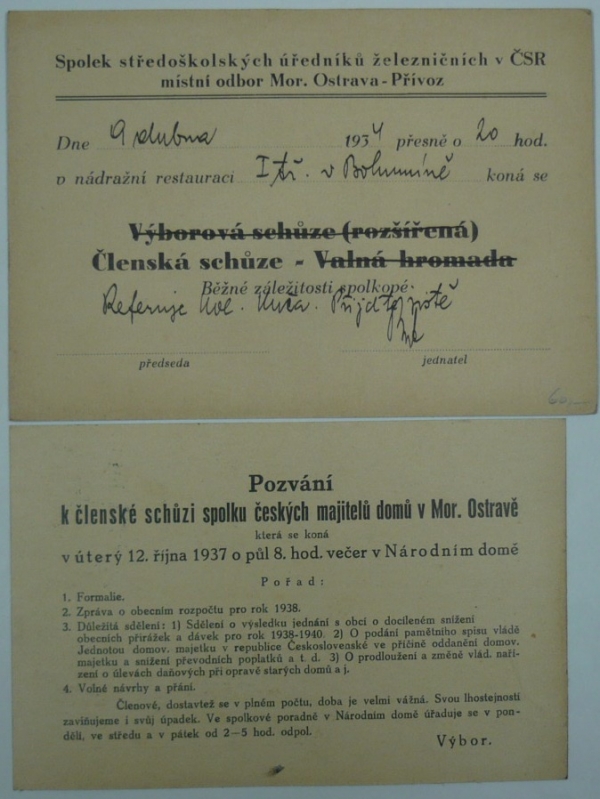 Spolek středoškolských úředníků železničních v ČSR
místní odbor Mor. Ostrava - Přívoz
Dne 9 dubna 1934 přesně o 20 hod.
v nádražní restauraci I tř. v Bohumíně koná se
Výborová schůze (rozšířená)
Členská schůze - Valná hromada
Běžné záležitosti spolkové.
Referuje kol. Přijďte jistě
předseda jednatel
60,—
Pozvání
k členské schůzi spolku českých majitelů domů v Mor. Ostravě
která se koná
v úterý 12. října 1937 o půl 8. hod. večer v Národním domě
Pořad:
1. Formalie.
2. Zpráva o obecním rozpočtu pro rok 1938.
3. Důležitá sdělení: 1) Sdělení o výsledku jednání s obcí o docíleném snížení
obecních přirážek a dávek pro rok 1938-1940. 2) O podání pamětního spisu vládě
Jednotou domov. majetku v republice Československé ve příčině oddanění domov.
majetku a snížení převodních poplatků a t. d. 3) O prodloužení a změně vlád. naří-
zení o úlevách daňových při opravě starých domů a j.
4. Volné návrhy a přání.
Členové, dostavtež se v plném počtu, doba je velmi vážná. Svou lhostejností
zaviňujeme i svůj úpadek. Ve spolkové poradně v Národním domě úřaduje se v pon-
děli, ve středu a v pátek od 2—5 hod. odpol.
Výbor.